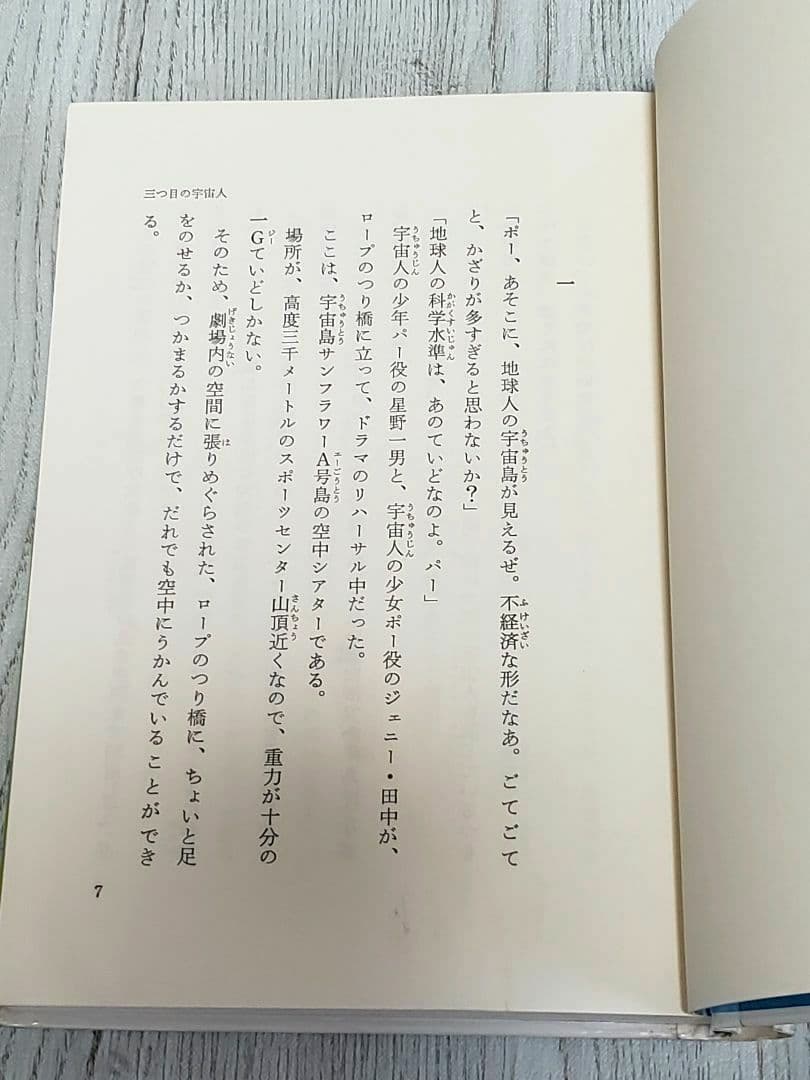 三つ目の宇宙人
一
「ポー、あそこに、地球人の宇宙島が見えるぜ。不経済な形だなあ。ごてごて
と、かざりが多すぎると思わないか？」
「地球人の科学水準は、あのていどなのよ。パー」
宇宙人の少年パー役の星野一男と、宇宙人の少女ポー役のジェニー・田中が、
ロープのつり橋に立って、ドラマのリハーサル中だった。
ここは、宇宙島サンフラワーA号島の空中シアターである。
場所が、高度三千メートルのスポーツセンター山頂近くなので、重力が十分の
一Gていどしかない。
そのため、劇場内の空間に張りめぐらされた、ロープのつり橋に、ちょいと足
をのせるか、つかまるかするだけで、だれでも空中にうかんでいることができ
る。
7